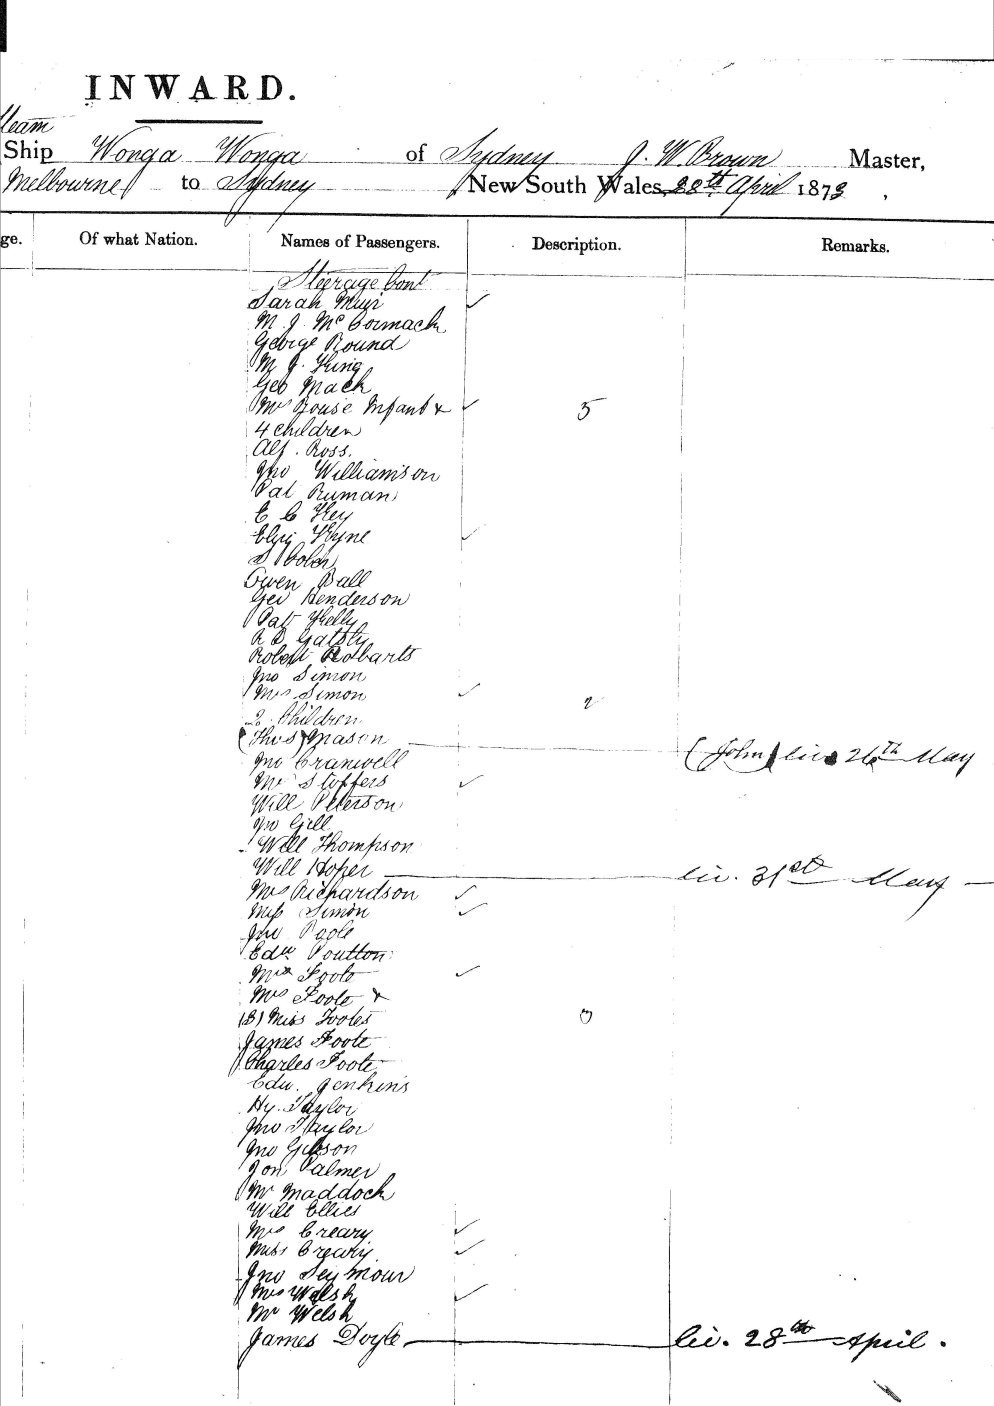 INWARD.
Steam
Ship Wonga Wonga of Sydney J. W. Brown Master,
Melbourne to Sydney New South Wales, 28th April 1873,
ge. Of what Nation. Names of Passengers. Description. Remarks.
Steerage Cont
Sarah Muir
M. J. McCormack
George Round
M J. King
Geo Mack
Mrs Rouse Infant & 5
4 children
Alf. Ross.
Jno Williamson
Pat Ruman
E C Key
Eliz Kyne
S
Owen Ball
Geo Henderson
Pat Kelly
R D Gatsby
Robert Robarts
Jno Simon
Mrs Simon 2
2 Children
(Thos) Mason (John) lic 26th May
Jno Cranwell
Stoffers
Will Peterson
Jno Gill
Will Thompson
Will Hoper lic. 31st May
Mrs Richardson
Miss Simon
Jno Poole
Edw Poulton
Foote
Mrs Foote &
(3) Miss Footes 3
James Foote
Charles Foote
Edw. Jenkins
Hy. Taylor
Jno Taylor
Jno Gibson
Jon Palmer
Mr Maddock
Will Ellies
Mrs Creary
Miss Creary
Jno Seymour
Mrs Welsh
Mr Welsh
James Doyle lic. 28th April.